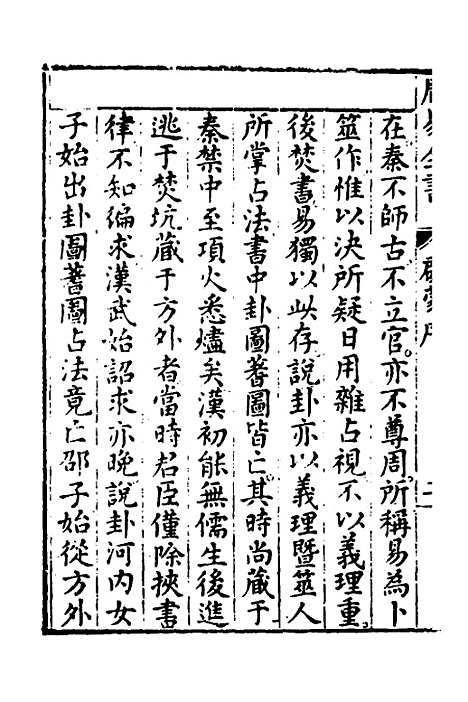 在秦不師古不立官亦不尊周所稱易為卜
筮作惟以決所疑日用雜占視不以義理重
後焚書易獨以此存說卦亦以義理暨筮人
所掌占法書中卦圖蓍圖皆亡其時尚藏于
秦禁中至項火悉燼矣漢初能無儒生後進
逃于焚坑藏于方外者當時君臣僅除挾書
律不知徧求漢武始詔求亦晚說卦河內女
子始出卦圖蓍圖占法竟亡邵子始從方外